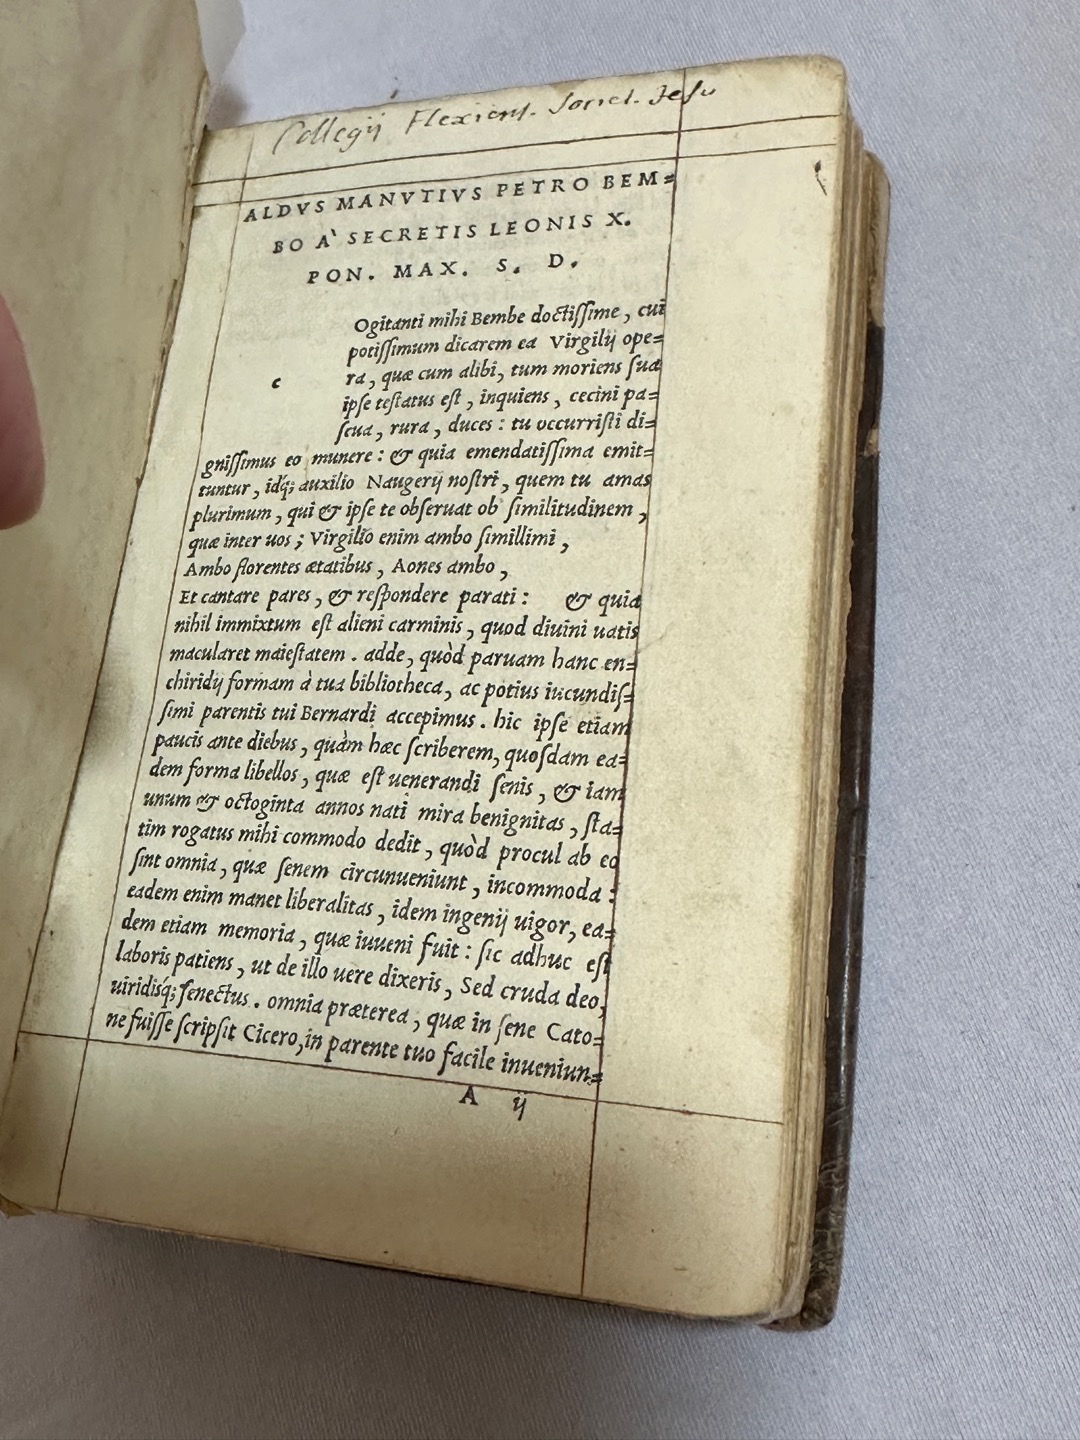 Collegij Flexiens. Societ. Jesu
ALDVS MANVTIVS PETRO BEM=
BO A` SECRETIS LEONIS X.
PON. MAX. S. D.
Ogitanti mihi Bembe doctiſſime, cui
potiſſimum dicarem ea Virgilij ope=
c ra, quæ cum alibi, tum moriens ſua
ipſe teſtatus eſt, inquiens, cecini pa=
ſcua, rura, duces: tu occurriſti di=
gniſſimus eo munere: & quia emendatiſſima emit=
tuntur, idq́; auxilio Naugerij noſtri, quem tu amas
plurimum, qui & ipſe te obſeruat ob ſimilitudinem,
quæ inter uos; Virgilio enim ambo ſimillimi,
Ambo florentes ætatibus, Aones ambo,
Et cantare pares, & reſpondere parati: & quia
nihil immixtum eſt alieni carminis, quod diuini uatis
macularet maieſtatem. adde, quòd paruam hanc en=
chiridij formam à tua bibliotheca, ac potius iucundiſ=
ſimi parentis tui Bernardi accepimus. hic ipſe etiam
paucis ante diebus, quàm hæc ſcriberem, quoſdam ea=
dem forma libellos, quæ eſt uenerandi ſenis, & iam
unum & octoginta annos nati mira benignitas, ſta=
tim rogatus mihi commodo dedit, quòd procul ab eo
ſint omnia, quæ ſenem circunueniunt, incommoda:
eadem enim manet liberalitas, idem ingenij uigor, ea=
dem etiam memoria, quæ iuueni fuit: ſic adhuc eſt
laboris patiens, ut de illo uere dixeris, Sed cruda deo,
uiridisq́; ſenectus. omnia præterea, quæ in ſene Cato=
ne fuiſſe ſcripſit Cicero, in parente tuo facile inueniun=
A ij